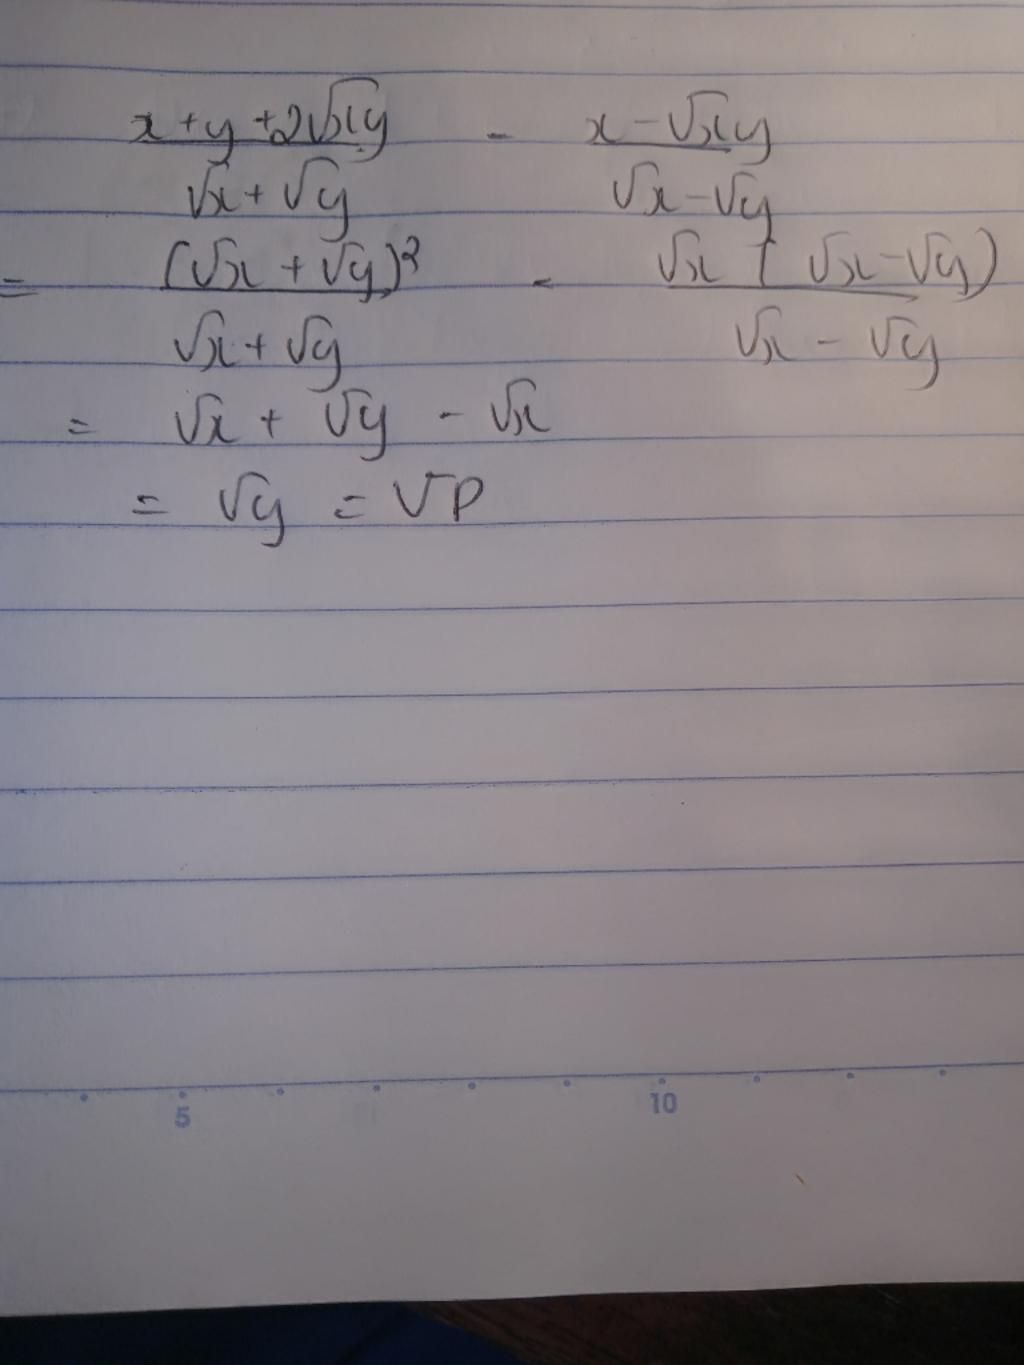 x + y + 2√xy / √x + √y - x - √xy / √x - √y
= (√x + √y)² / √x + √y - √x (√x - √y) / √x - √y
= √x + √y - √x
= √y = √P
5 10